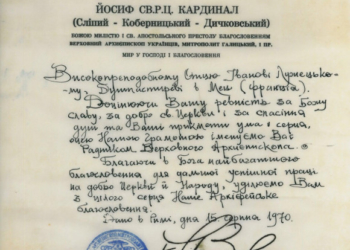 ЙОСИФ СВ.Р.Ц. КАРДИНАЛ
(Сліпий - Коберницький - Дичковський)
БОЖОЮ МИЛІСТЮ І СВ. АПОСТОЛЬСЬКОГО ПРЕСТОЛУ БЛАГОСЛОВЕННЯМ
ВЕРХОВНИЙ АРХИЕПИСКОП УКРАЇНЦІВ, МИТРОПОЛИТ ГАЛИЦЬКИЙ, І ПР.
МИР У ГОСПОДІ І БЛАГОСЛОВЕННЯ
Високопреподобному Отцю Іванові
в Мец (Франція).
Доцінюючи Вашу ревність за Божу
славу, за добро св. Церкви і за спасіння
душ та Ваші прикмети ума і серця,
цією Нашою Грамотою іменуємо Вас
Радником Верховного Архиепископа. =
Благаючи в Бога найбагатшого
благословення для дальшої успішної праці
на добро Церкви й Народу, уділюємо Вам
з цілого серця Наше Архиєрейське
благословення.
Дано в Римі, дня 15 1970.